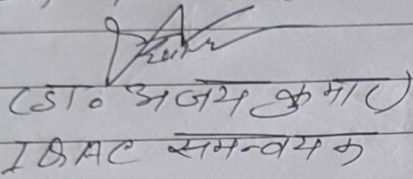 (डॉ० अजय कुमार)
IQAC समन्वयक